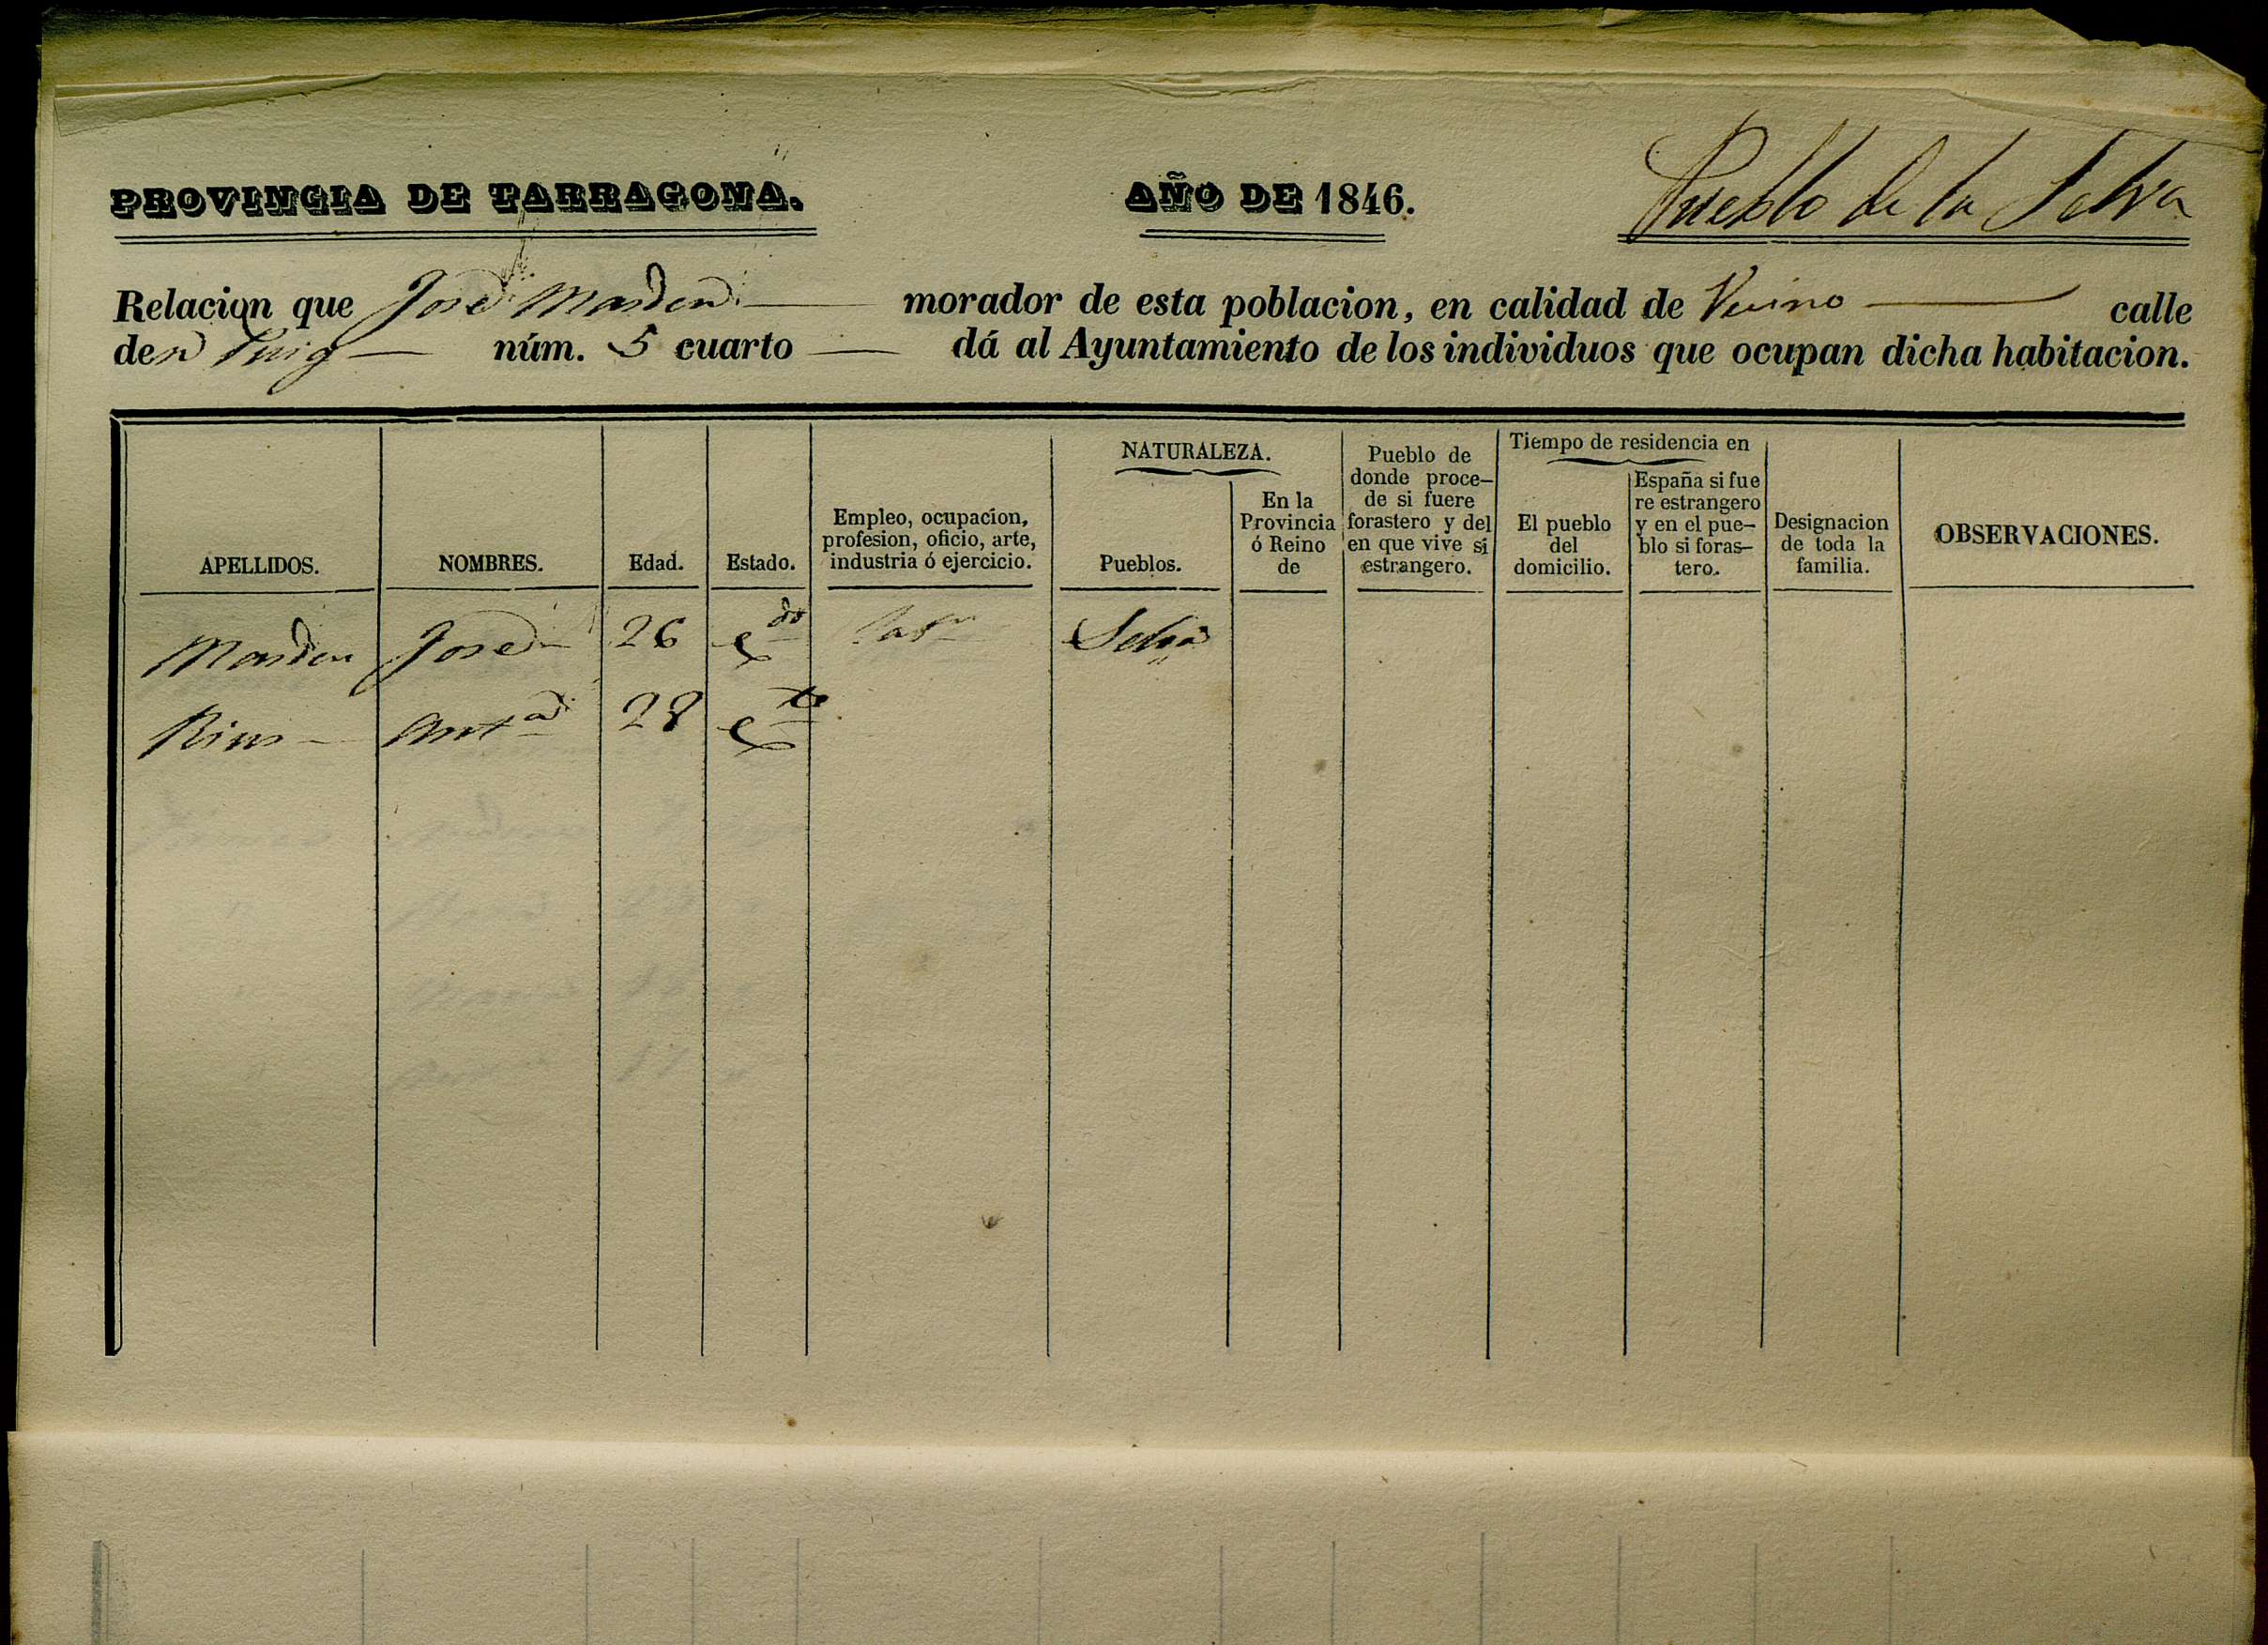 PROVINCIA DE TARRAGONA. AÑO DE 1846. Pueblo de la Selva
Relacion que José Masdeu morador de esta poblacion, en calidad de Vecino calle
den Puig núm. 5 cuarto dá al Ayuntamiento de los individuos que ocupan dicha habitacion.
APELLIDOS.
NOMBRES.
Edad.
Estado.
Empleo, ocupacion,
profesion, oficio, arte,
industria ó ejercicio.
NATURALEZA.
Pueblos.
En la
Provincia
ó Reino
de
Pueblo de
donde proce–
de si fuere
forastero y del
en que vive si
estrangero.
Tiempo de residencia en
El pueblo
del
domicilio.
España si fue
re estrangero
y en el pue–
blo si foras–
tero.
Designacion
de toda la
familia.
OBSERVACIONES.
Masdeu José 26 c.do Labr Selva
Rius Ant.a 28